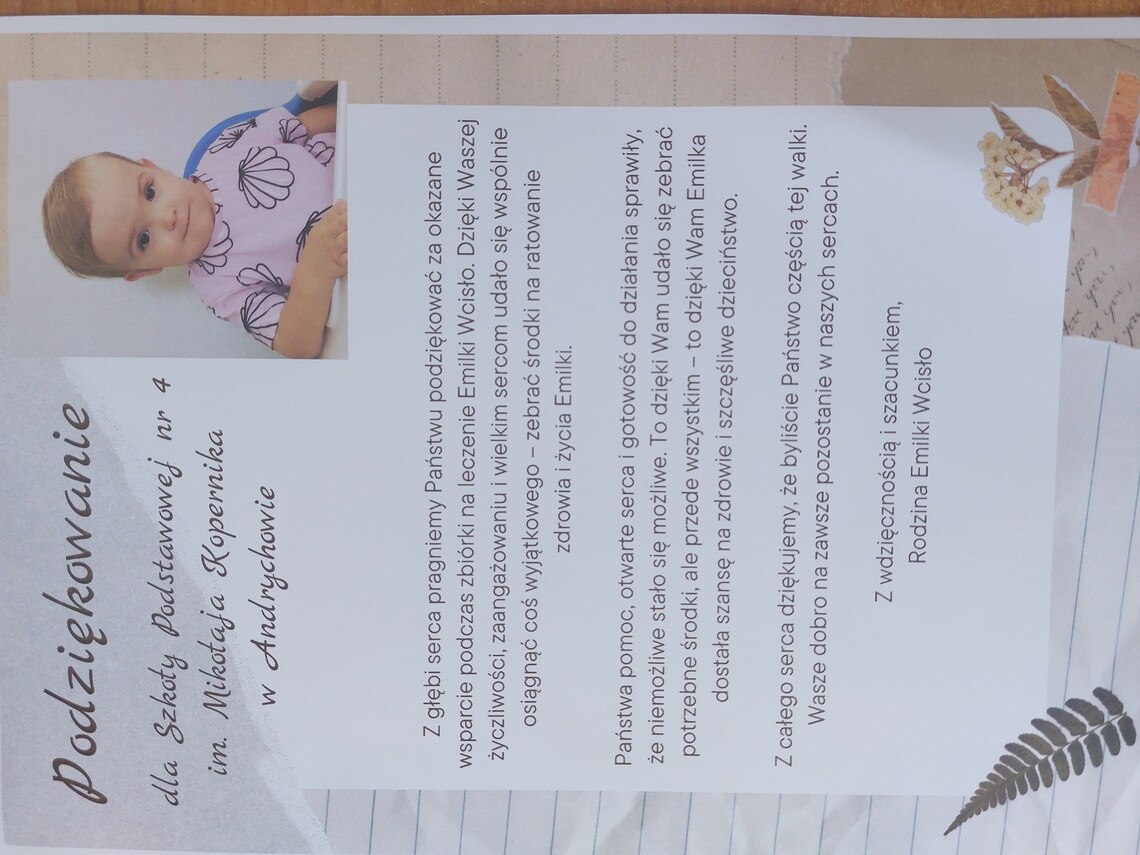 Podziękowanie
dla Szkoły Podstawowej nr 4
im. Mikołaja Kopernika
w Andrychowie
Z głębi serca pragniemy Państwu podziękować za okazane
wsparcie podczas zbiórki na leczenie Emilki Wcisło. Dzięki Waszej
życzliwości, zaangażowaniu i wielkim sercom udało się wspólnie
osiągnąć coś wyjątkowego – zebrać środki na ratowanie
zdrowia i życia Emilki.
Państwa pomoc, otwarte serca i gotowość do działania sprawiły,
że niemożliwe stało się możliwe. To dzięki Wam udało się zebrać
potrzebne środki, ale przede wszystkim – to dzięki Wam Emilka
dostała szansę na zdrowie i szczęśliwe dzieciństwo.
Z całego serca dziękujemy, że byliście Państwo częścią tej walki.
Wasze dobro na zawsze pozostanie w naszych sercach.
Z wdzięcznością i szacunkiem,
Rodzina Emilki Wcisło